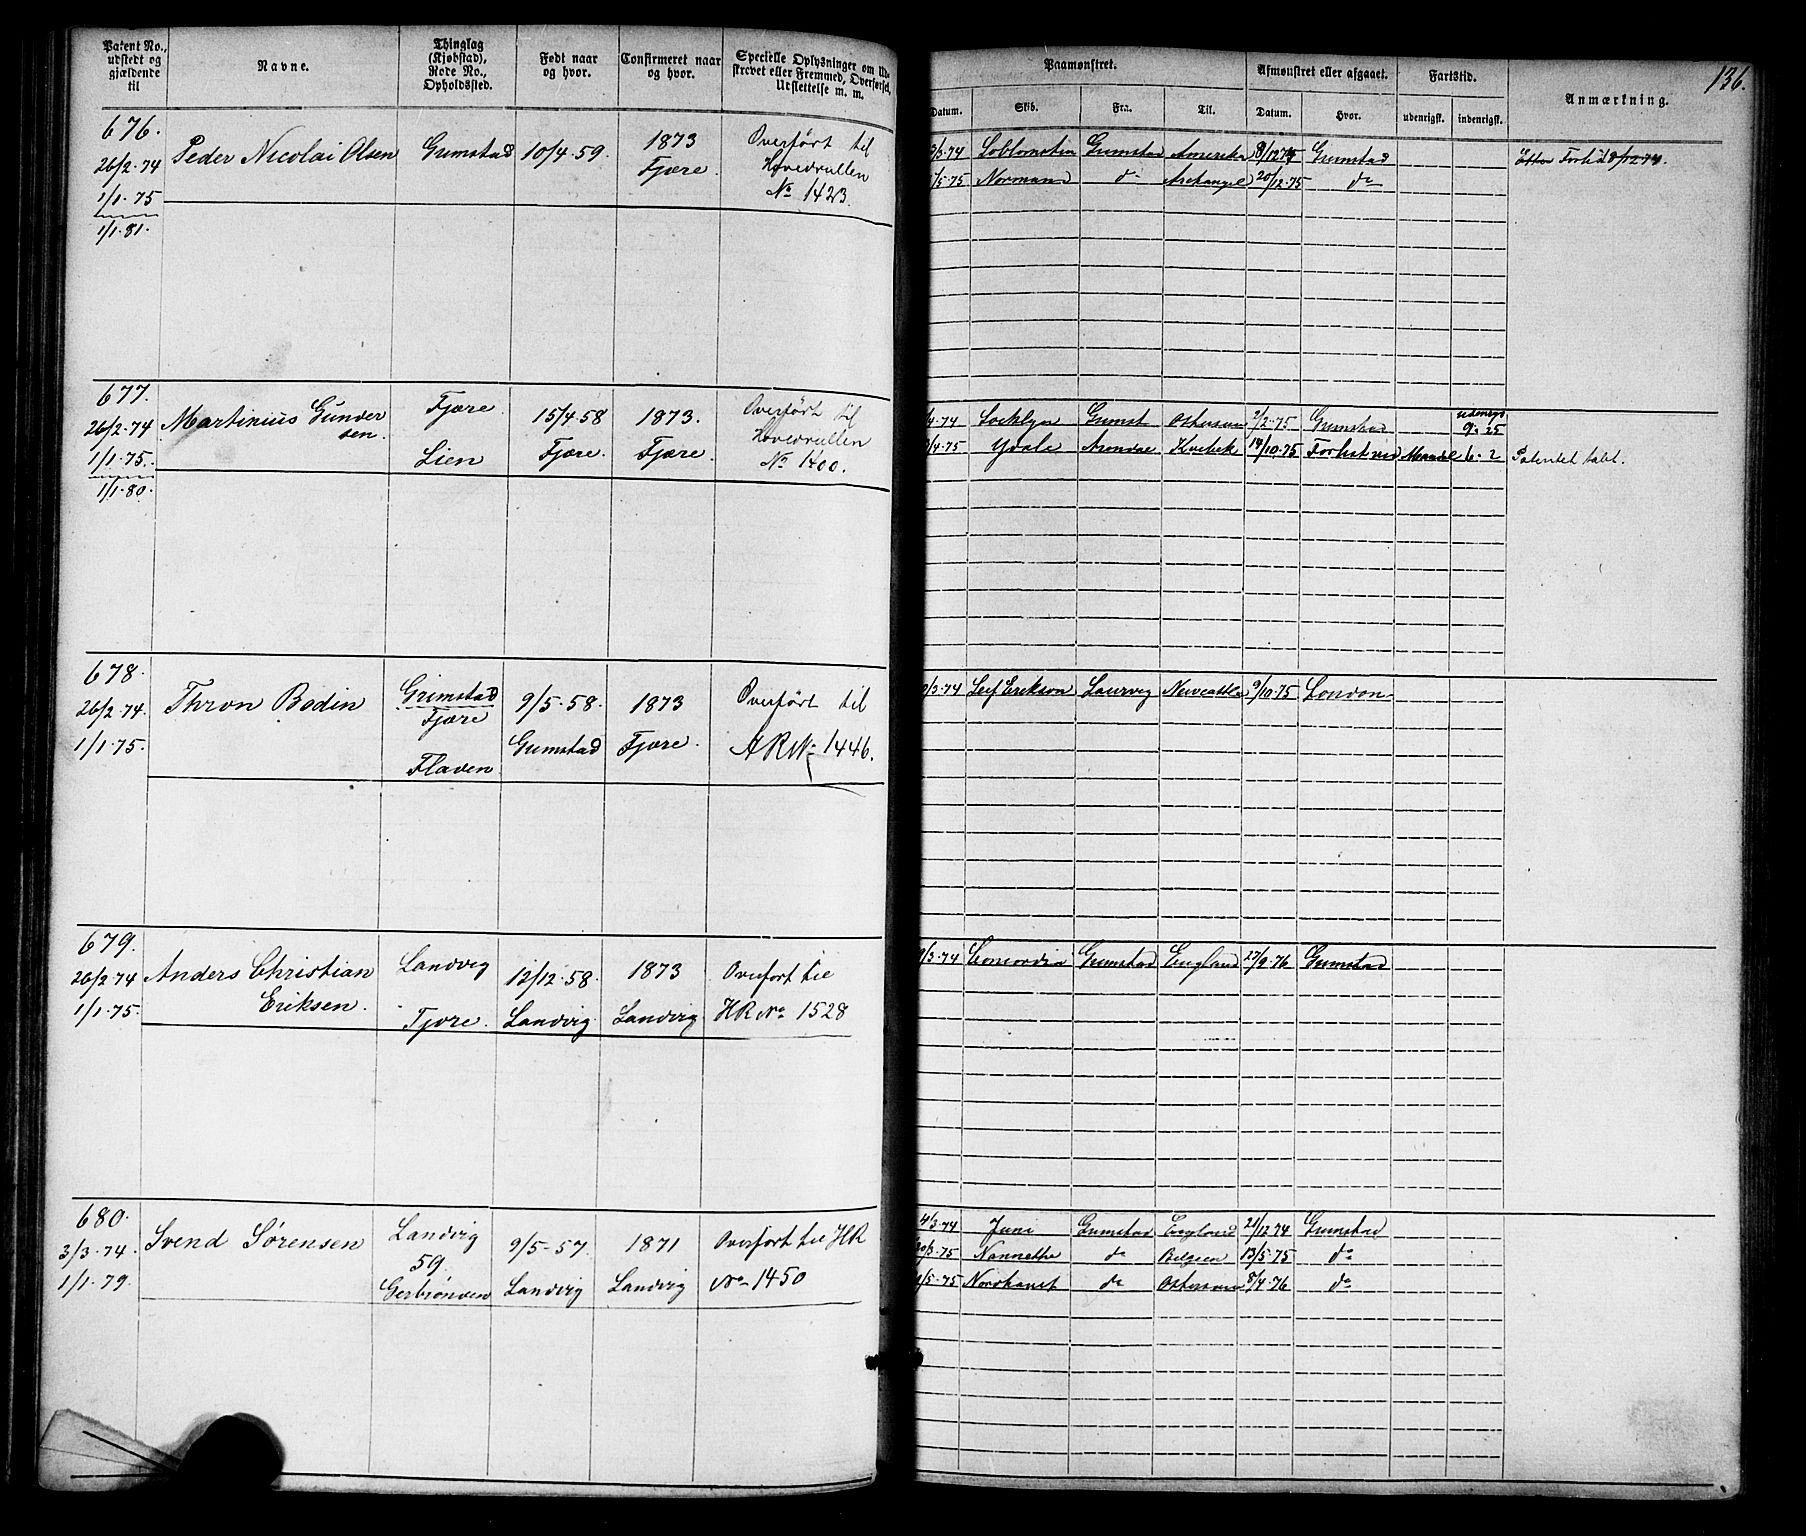 136.
Patent No., udstedt og gjældende til
Navne.
Thinglag (Kjøbstad), Rode No., Opholdssted.
Født naar og hvor.
Confirmeret naar og hvor.
Specielle Oplysninger om Udskrevet eller Fremmed, Overførsel, Udslettelse m. m.
Paamønstret.
Afmønstret eller afgaaet.
Fartstid.
Anmærkning.
Datum. Skib. Fra. Til. Datum. Hvor. udenrigsk. indenrigsk.
676.
26/2-74
1/1-75
1/1-81.
Peder Nicolai Olsen
Grimstad
10/4-59.
1873
Fjære.
Overført til
Hovedrullen
No 1423.
3/3-74 Grimstad Amerika 8/12 74 Grimstad
/5-75 Normand do Archangel 20/12-75 do
8/12 74.
677.
26/2-74
1/1-75.
1/1-80.
Martinius Gunder
sen.
Fjære.
Lien
15/4-58
Fjære.
1873.
Fjære.
Overført til
Hovedrullen
No 1400.
/4-74 Grimst Østersøen 2/2-75 Grimstad udenrgs. 9-25
/4-75 Ydale Arendal Kvebek 19/10-75 Forlist ved Mandl 6-2 Patentet tabt.
678.
26/2-74.
1/1-75.
Thron Bodin
Grimstad
Fjære
Flaven
9/5-58.
Grimstad
1873
Fjære.
Overført til
ARNo 1446.
/3-74 Leif Erikson Laurvig Newcastle 9/10-75 London
679.
26/2-74
1/1-75.
Anders Christian
Eriksen.
Landvig
Fjære.
12/12-58.
Landvig
1873
Landvig
Overført til
HR No 1528
/3-74 Concordia Grimstad England 27/9-76 Grimstad
680.
3/3-74.
1/1-79.
Svend Sørensen
Landvig
59.
9/5-57.
Landvig
1871
Landvig
Overført til HR
No 1450
4/3-74 Juni Grimstad England 21/12 74 Grimstad
/3-75 Nannethe do Belgien 13/5-75 do
/5-75 do Østersøen 8/4-76 do